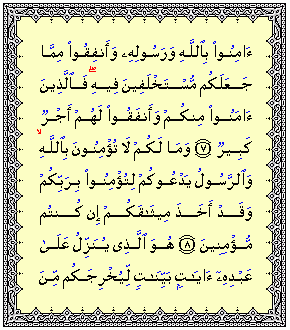 ءَامِنُوا۟ بِٱللَّهِ وَرَسُولِهِۦ وَأَنفِقُوا۟ مِمَّا
جَعَلَكُم مُّسْتَخْلَفِينَ فِيهِ ۖ فَٱلَّذِينَ
ءَامَنُوا۟ مِنكُمْ وَأَنفَقُوا۟ لَهُمْ أَجْرٌۭ
كَبِيرٌۭ ﴿٧﴾ وَمَا لَكُمْ لَا تُؤْمِنُونَ بِٱللَّهِ ۙ
وَٱلرَّسُولُ يَدْعُوكُمْ لِتُؤْمِنُوا۟ بِرَبِّكُمْ
وَقَدْ أَخَذَ مِيثَـٰقَكُمْ إِن كُنتُم
مُّؤْمِنِينَ ﴿٨﴾ هُوَ ٱلَّذِى يُنَزِّلُ عَلَىٰ
عَبْدِهِۦٓ ءَايَـٰتٍۭ بَيِّنَـٰتٍۢ لِّيُخْرِجَكُم مِّنَ